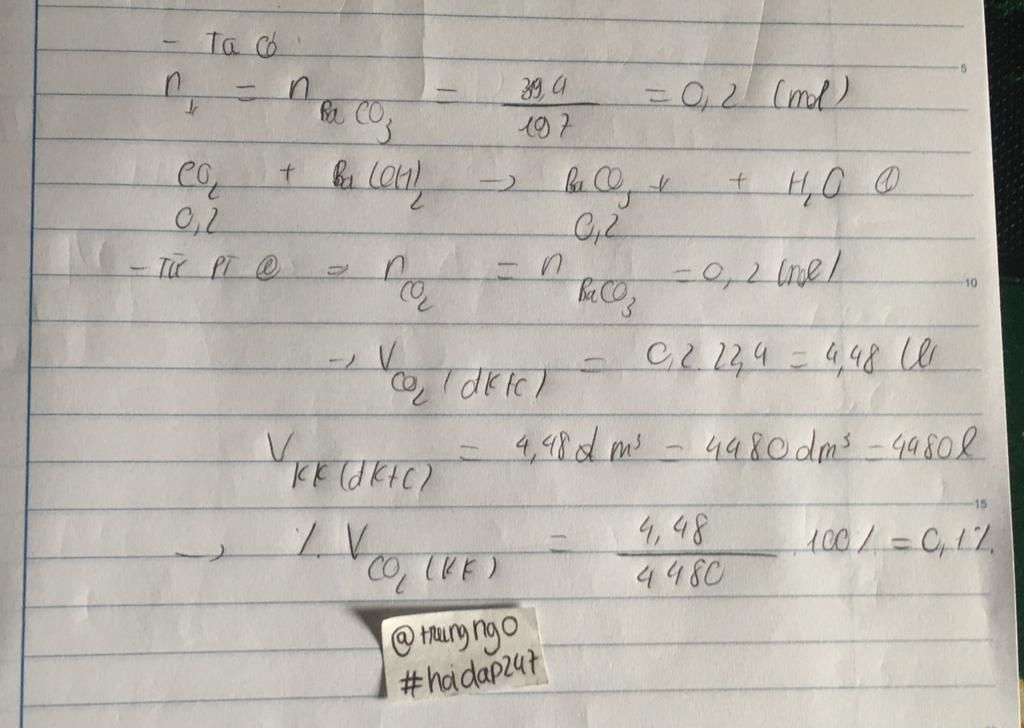 - Ta có
n↓ = n BaCO3 = 39,4 / 197 = 0,2 (mol)
CO2 + Ba(OH)2 → BaCO3↓ + H2O ①
0,2 0,2
- Từ PT ① => n CO2 = n BaCO3 = 0,2 (mol)
→ V CO2 (đktc) = 0,2.22,4 = 4,48 (l)
V KK (đktc) = 4,48 d m³ = 4480 dm³ = 4480 l
→ % V CO2 (KK) = 4,48 / 4480 .100% = 0,1%.
@trungngo
#hoidap247
5
10
15